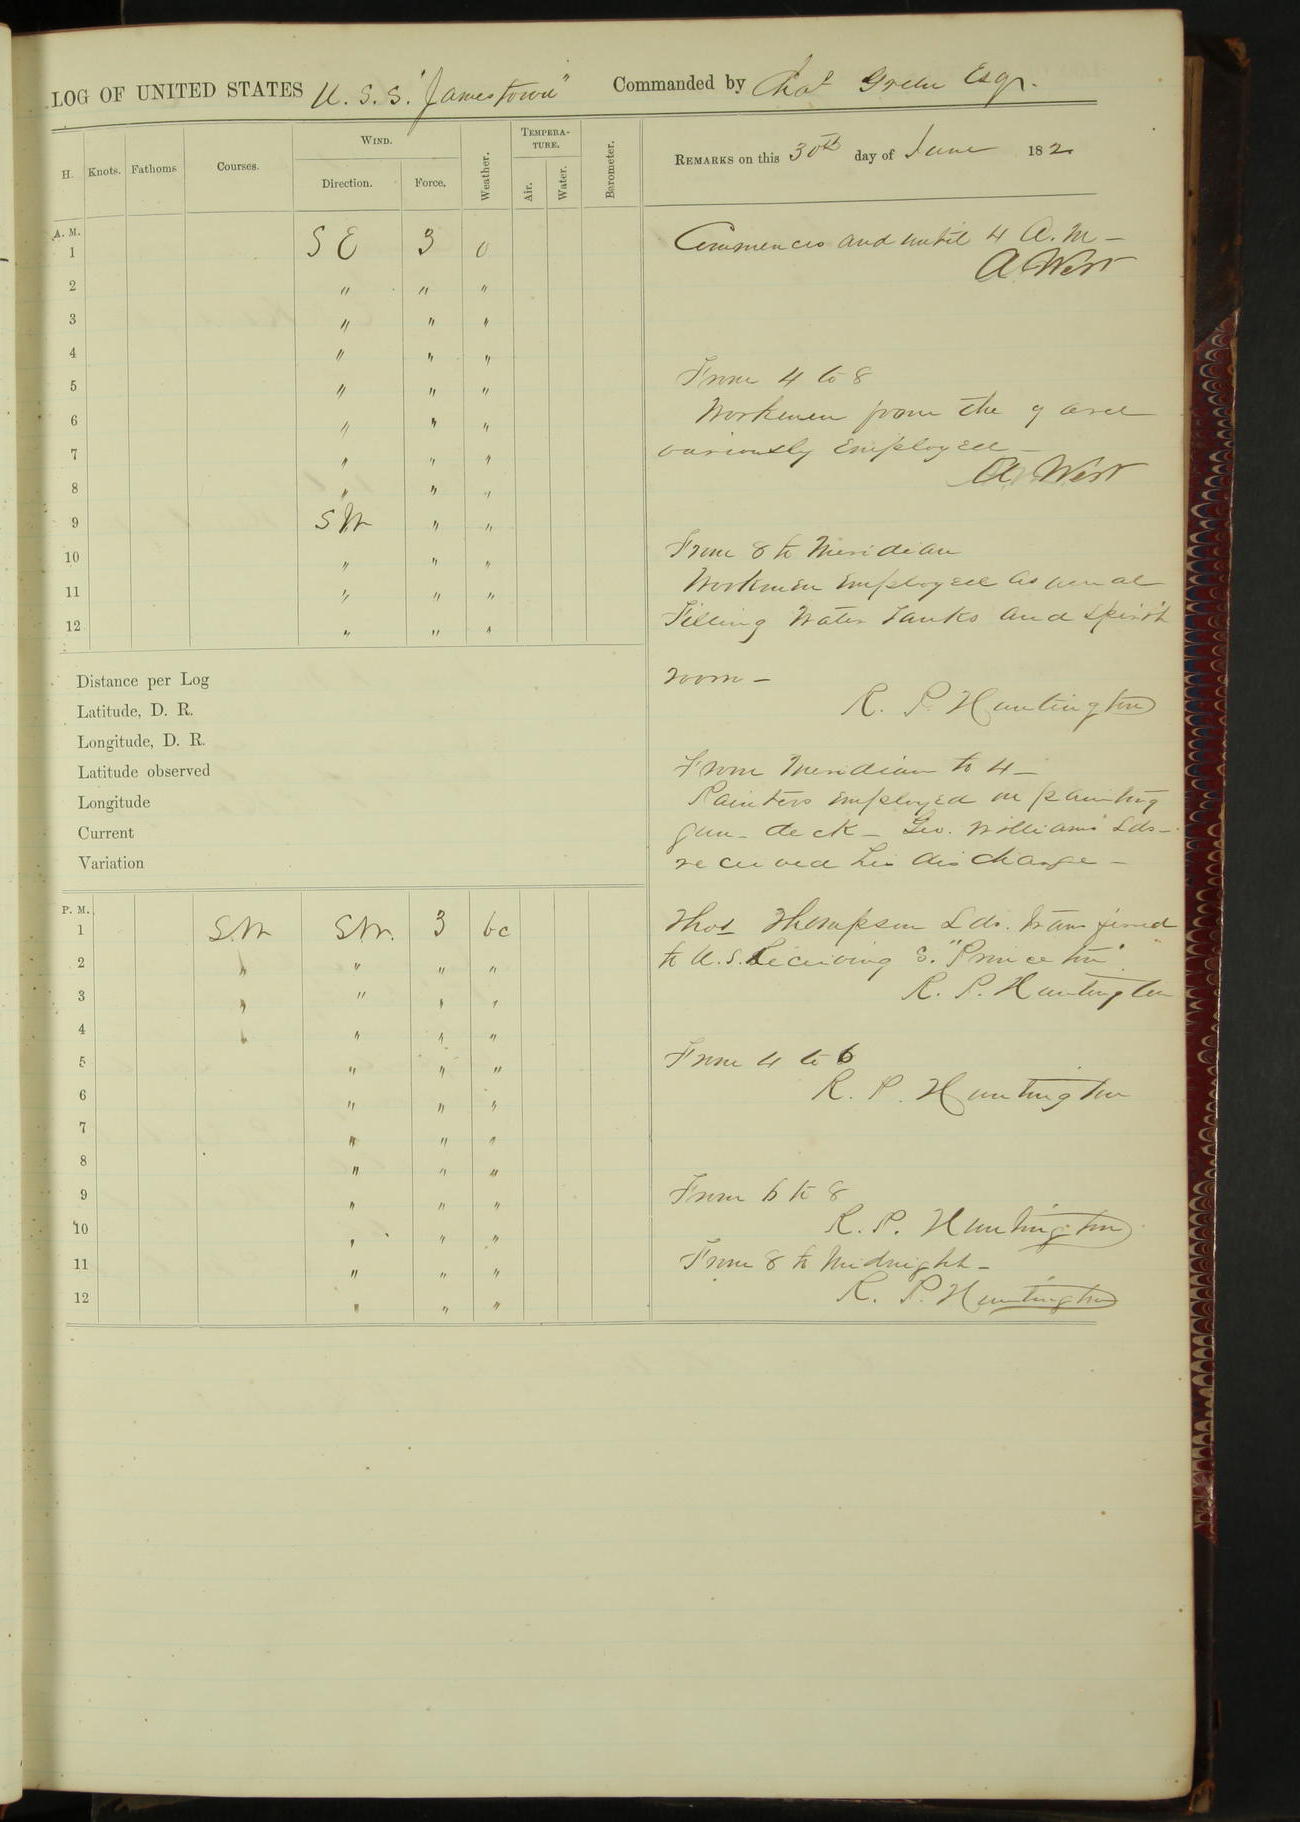 LOG OF UNITED STATES U. S. S. "Jamestown" Commanded by Chas Green Esqr.
H. Knots. Fathoms Courses. WIND. Direction. Force. Weather. TEMPERATURE. Air. Water. Barometer. REMARKS on this 30th day of June 182
A. M.
1 S E 3 o
2 " " "
3 " " "
4 " " "
5 " " "
6 " " "
7 " " "
8 " " "
9 S W " "
10 " " "
11 " " "
12 " " "
Commences and until 4 A. M –
A West
From 4 to 8
Workmen from the yard
variously employed –
A West
From 8 to Meridian
Workmen employed as usual
Filling Water Tanks and Spirit
room –
R. P. Huntington
Distance per Log
Latitude, D. R.
Longitude, D. R.
Latitude observed
Longitude
Current
Variation
From Meridian to 4 –
Painters employed in painting
gun-deck – Geo. Williams Lds –
received his discharge –
P. M.
1 S.W S.W. 3 bc
2 " " " "
3 " " " "
4 " " " "
5 " " "
6 " " "
7 " " "
8 " " "
9 " " "
10 " " "
11 " " "
12 " " "
Thos Thompson Lds. transferred
to U. S. Receiving S. "Princeton"
R. P. Huntington
From 4 to 6
R. P. Huntington
From 6 to 8
R. P. Huntington
From 8 to Midnight –
R. P. Huntington